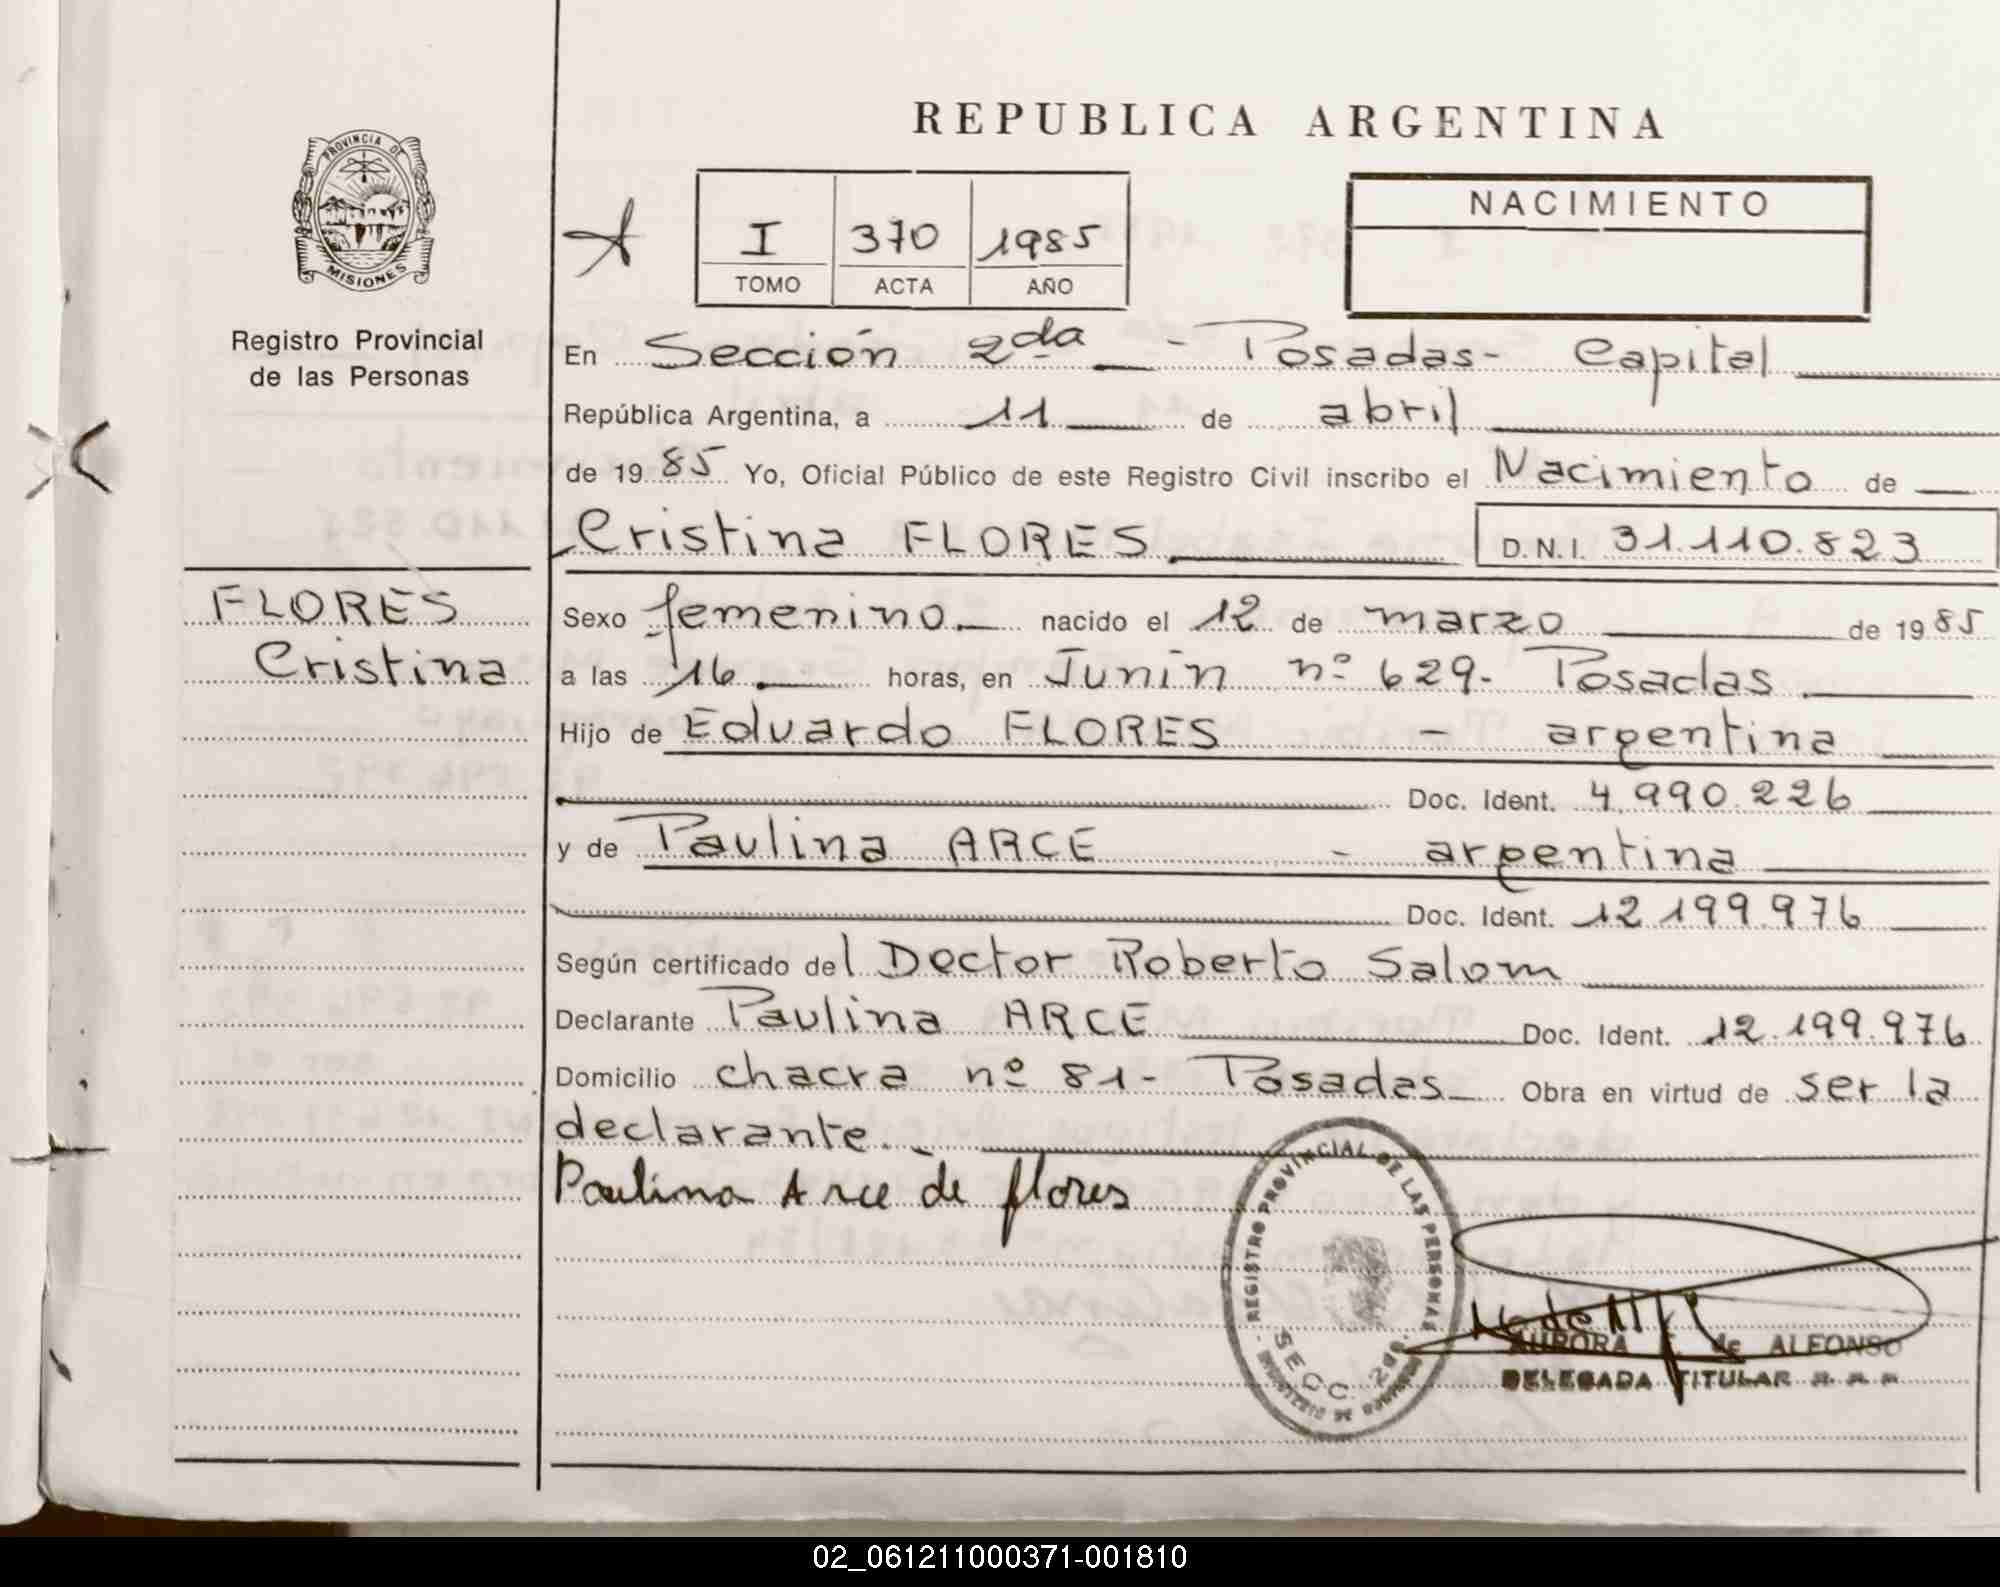 REPUBLICA ARGENTINA
PROVINCIA DE
MISIONES
Registro Provincial
de las Personas
I 370 1985
TOMO ACTA AÑO
NACIMIENTO
En Sección 2da - Posadas - Capital
República Argentina, a 11 de abril
de 1985 Yo, Oficial Público de este Registro Civil inscribo el Nacimiento de
Cristina FLORES D.N.I. 31.110.823
FLORES
Cristina
Sexo femenino nacido el 12 de marzo de 1985
a las 16 horas, en Junín nº 629- Posadas
Hijo de Eduardo FLORES - argentina
Doc. Ident. 4.990.226
y de Paulina ARCE - argentina
Doc. Ident. 12.199.976
Según certificado del Doctor Roberto Salom
Declarante Paulina ARCE Doc. Ident. 12.199.976
Domicilio chacra nº 81- Posadas Obra en virtud de ser la
declarante.
Paulina Arce de flores
REGISTRO PROVINCIAL DE LAS PERSONAS
SECC. 2da
AURORA de ALFONSO
DELEGADA TITULAR
02_061211000371-001810